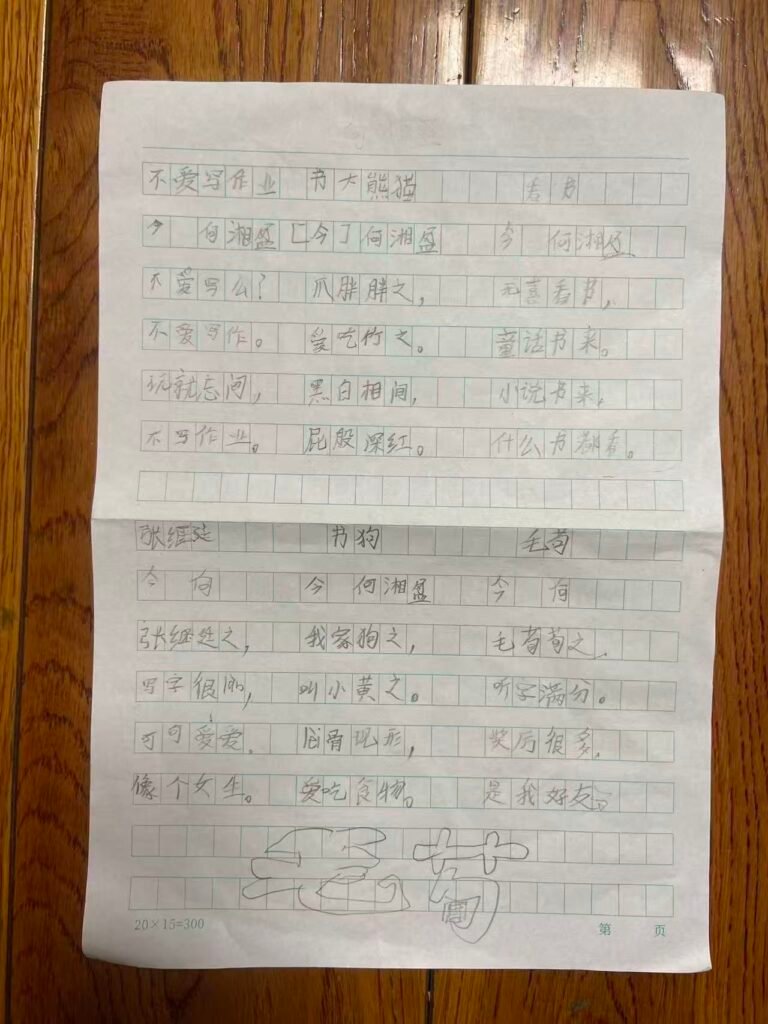 不爱写作业 书大熊猫 看书
今 何湘盈 [今]何湘盈 今 何湘盈
不爱写么? 爪胖胖之, 无喜看书,
不爱写作。 爱吃竹之。 童话书来。
玩就忘问, 黑白相间, 小说书来,
不写作业。 屁股深红。 什么书都看。
张继廷 书狗 毛荀
今 何 今 何湘盈 今 何
张继廷之, 我家狗之, 毛荀荀之,
写字很 叫小黄之。 听字满分。
可可爱爱. 骨现形, 奖历很多,
像个女生。 爱吃食物。 是我好友
毛荀
20×15=300 第 页